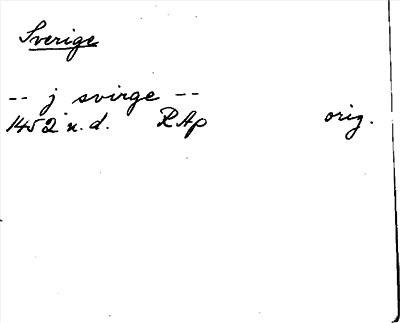 Sverige
-- j svirge --
1452 n.d. RAp orig.